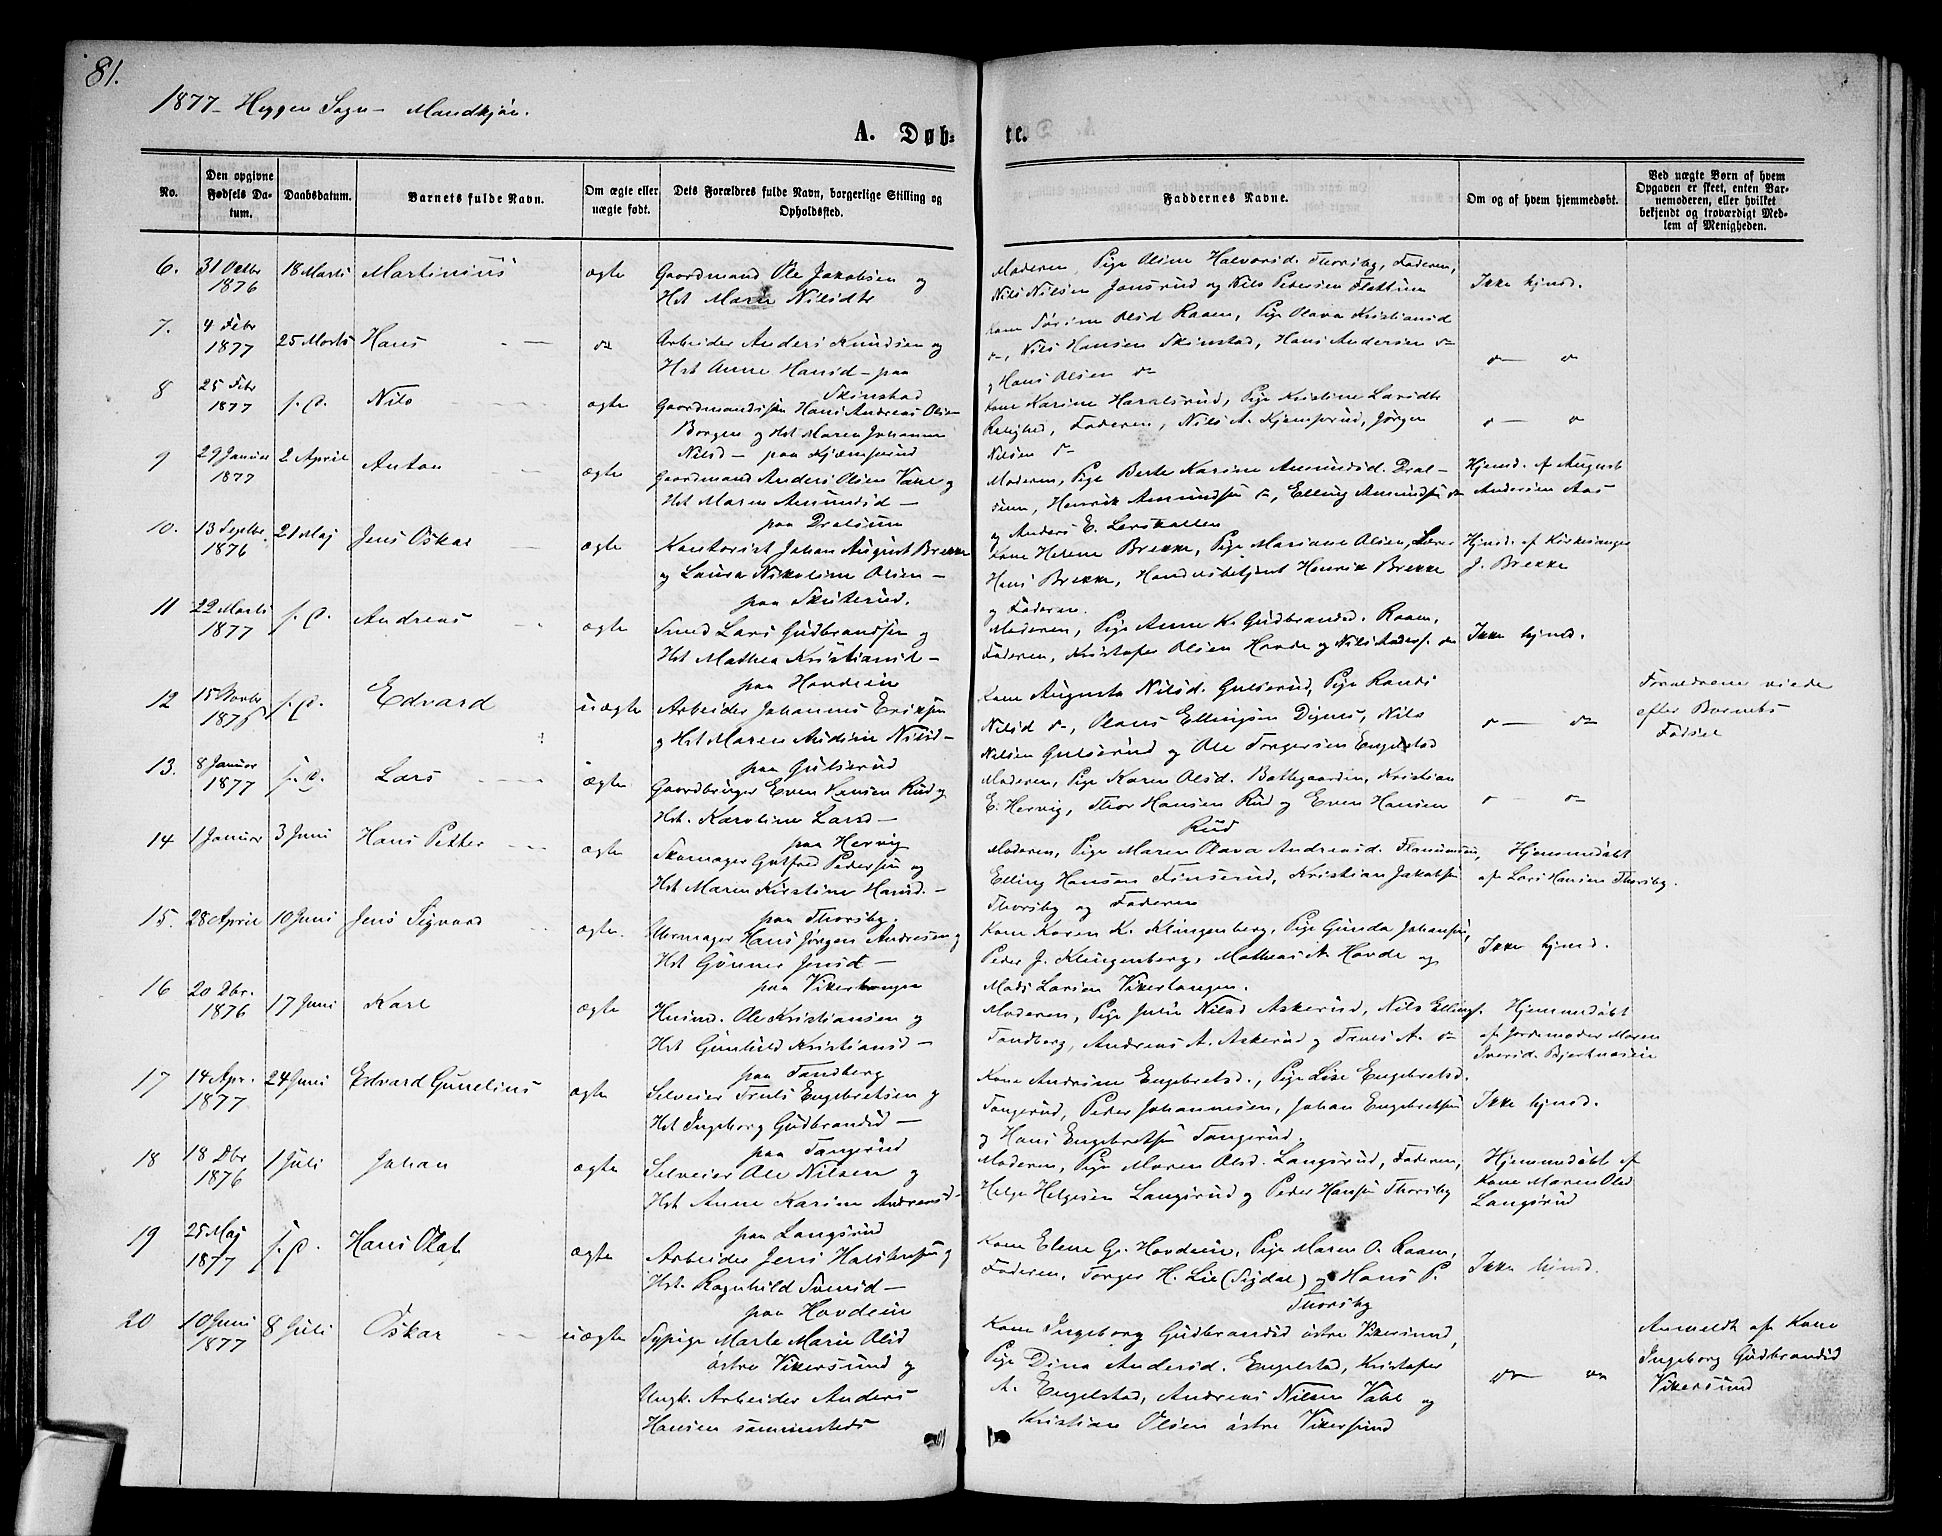 81.
1877 - Heggen Sogn - Mandkjøn.
A. Døb-
te.
No.
Den opgivne Fødsels Da-
tum.
Daabsdatum.
Barnets fulde Navn.
Om ægte eller
uægte født.
Dets Forældres fulde Navn, borgerlige Stilling og
Opholdssted.
Faddernes Navne.
Om og af hvem hjemmedøbt.
Ved uægte Børn af hvem
Opgaven er skeet, enten Bar-
nemoderen, eller hvilket
bekjendt og troværdigt Med-
lem af Menigheden.
6. 31 Octbr 1876 18 Marts Martinius ægte
Gaardmand Ole Jakobsen og
Hst Maren Nilsdt
Moderen, Pige Oline Halvorsd. Thorsby, Faderen,
Nils Nilsen Jonsrud og Nils Pedersen Flattum
Ikke hjmd.
7. 4 Febr 1877 25 Marts Hans do
Arbeider Anders Knudsen og
Hst Anne Hansd - paa
Skinstad
Kone Sørine Olsd Raaen, Pige Olava Kristiansd
do, Nils Hansen Skinstad, Hans Andersen do
og Hans Olsen do
do do
8 25 Febr 1877 s. D. Nils ægte
Gaardmandssøn Hans Andreas Olsen
Borgen og Hst Maren Johanne
Nilsd - paa Kjæmperud
Kone Karine Haralsrud, Pige Kristine Larsdt
, Faderen, Nils A. Kjemperud, Jørgen
Nilsen do
do do
9 29 Januar 1877 2 April Anton ægte
Gaardmand Anders Olsen Vahl og
Hst Maren Amundsd -
paa Dralsum
Moderen, Pige Berte Karine Amundsd. Dral-
sum, Henrik Amundsen do, Elling Amundsen do
og Anders E. Lerskallen
Hjemd. af August
Andersen Aas
10. 13 Septbr 1876 21 Maj Jens Oskar ægte
Kontorist Johan August Brekke
og Laura Nikoline Olsen -
paa Skuterud.
Kone Helene Brekke, Pige Mariane Olsen, Lærer
Hans Brekke, Handelsbetjent Henrik Brekke
og Faderen.
Hjmd. af Kirkesanger
J. Brekke
11 22 Marts 1877 s. D. Andreas ægte
Smed Lars Gudbrandsen og
Hst Mathea Kristiansd -
paa Hovdein
Moderen, Pige Anne K. Gudbrandsd. Raaen,
Faderen, Kristofer Olsen Hovde og Nils Anders. do
Ikke hjmd.
12 15 Novbr 1875 s. D. Edvard uægte
Arbeider Johannes Eriksen
og Hst Maren Andrine Nilsd -
paa Gulserud
Kone Augusta Nilsd. Gulserud, Pige Randi
Nilsd do, Olaus Ellingsen Dignes, Nils
Nilsen Gulserud og Ole Torgersen Engelstad
do do
Forældrene viede
efter Barnets
Fødsel
13. 8 Januar 1877 s. D. Lars ægte
Gaardbruger Even Hansen Rud og
Hst. Karoline Larsd -
paa Hervig
Moderen, Pige Karen Olsd. Battegaarden, Kristian
E. Hervig, Thor Hansen Rud og Even Hansen
Rud
do do
14 1 Januar 3 Juni Hans Petter ægte
Skomager Gulfred Pedersen og
Hst Maren Kirstine Hansd. -
paa Thorsby.
Moderen, Pige Maren Olava Andreasd.
Elling Hansen Finserud, Kristian Jakobsen
Thorsby og Faderen
Hjemmedøbt
af Lars Hansen Thorsby.
15. 28 April 10 Juni Jens Sigvard ægte.
Urmager Hans Jørgen Andresen og
Hst Gunner Jensd -
paa Vikerhaugen
Kone Karen K. Klingenberg, Pige Gunda Johansen,
Peder J. Klingenberg, Mathias A. Hovde og
Mads Larsen Vikerhaugen.
Ikke hjmd.
16 20 Dbr. 1876 17 Juni Karl ægte
Husmd. Ole Kristiansen og
Hst Gunhild Kristiansd -
paa Tandberg
Moderen, Pige Julie Nilsd Askerud, Nils Ellings.
Tandberg, Andreas A. Askerud og Truls A. do
Hjemmedøbt
af Jordemoder Maren
Iversd. Bjertnæsein
17 14 Apr. 1877 24 Juni Edvard Gunelius ægte
Selveier Truls Engebretsen og
Hst Ingeborg Gudbrandsd -
paa Tangerud
Kone Andrine Engebretsd., Pige Lise Engebretsd.
Tangerud, Peder Johannesen, Johan Engebretsen
og Hans Engebretsen Tangerud.
Ikke hjmd.
18 18 Dbr 1876 1 Juli Johan ægte
Selveier Ole Nilsen og
Hst Anne Karine Andreasd -
paa Langsrud
Moderen, Pige Maren Olsd. Langsrud, Faderen,
Helge Helgesen Langsrud og Peder Hansen Thorsby
Hjemmedøbt af
Kone Maren Olsd
Langsrud
19 25 Maj 1877 s. D. Hans Olaf ægte
Arbeider Jens Halstensen og
Hst. Ragnhild Svensd -
paa Hovdein
Kone Elene G. Hovdein, Pige Maren O. Raaen,
Faderen, Torger H. Lie (Sigdal) og Hans P.
Thorsby
Ikke hjmd.
20 10 Juni 1877 8 Juli Oskar uægte
Sypige Marte Marie Olsd
østre Vikersund og
Ungk. Arbeider Anders
Hansen sammesteds
Kone Ingeborg Gudbrandsd østre Vikersund,
Pige Dina Andersd. Engelstad, Kristofer
A. Engelstad, Andreas Nilsen Vahl og
Kristian Olsen østre Vikersund
do do
Anmeldt af Kone
Ingeborg Gudbrandsd
Vikersund